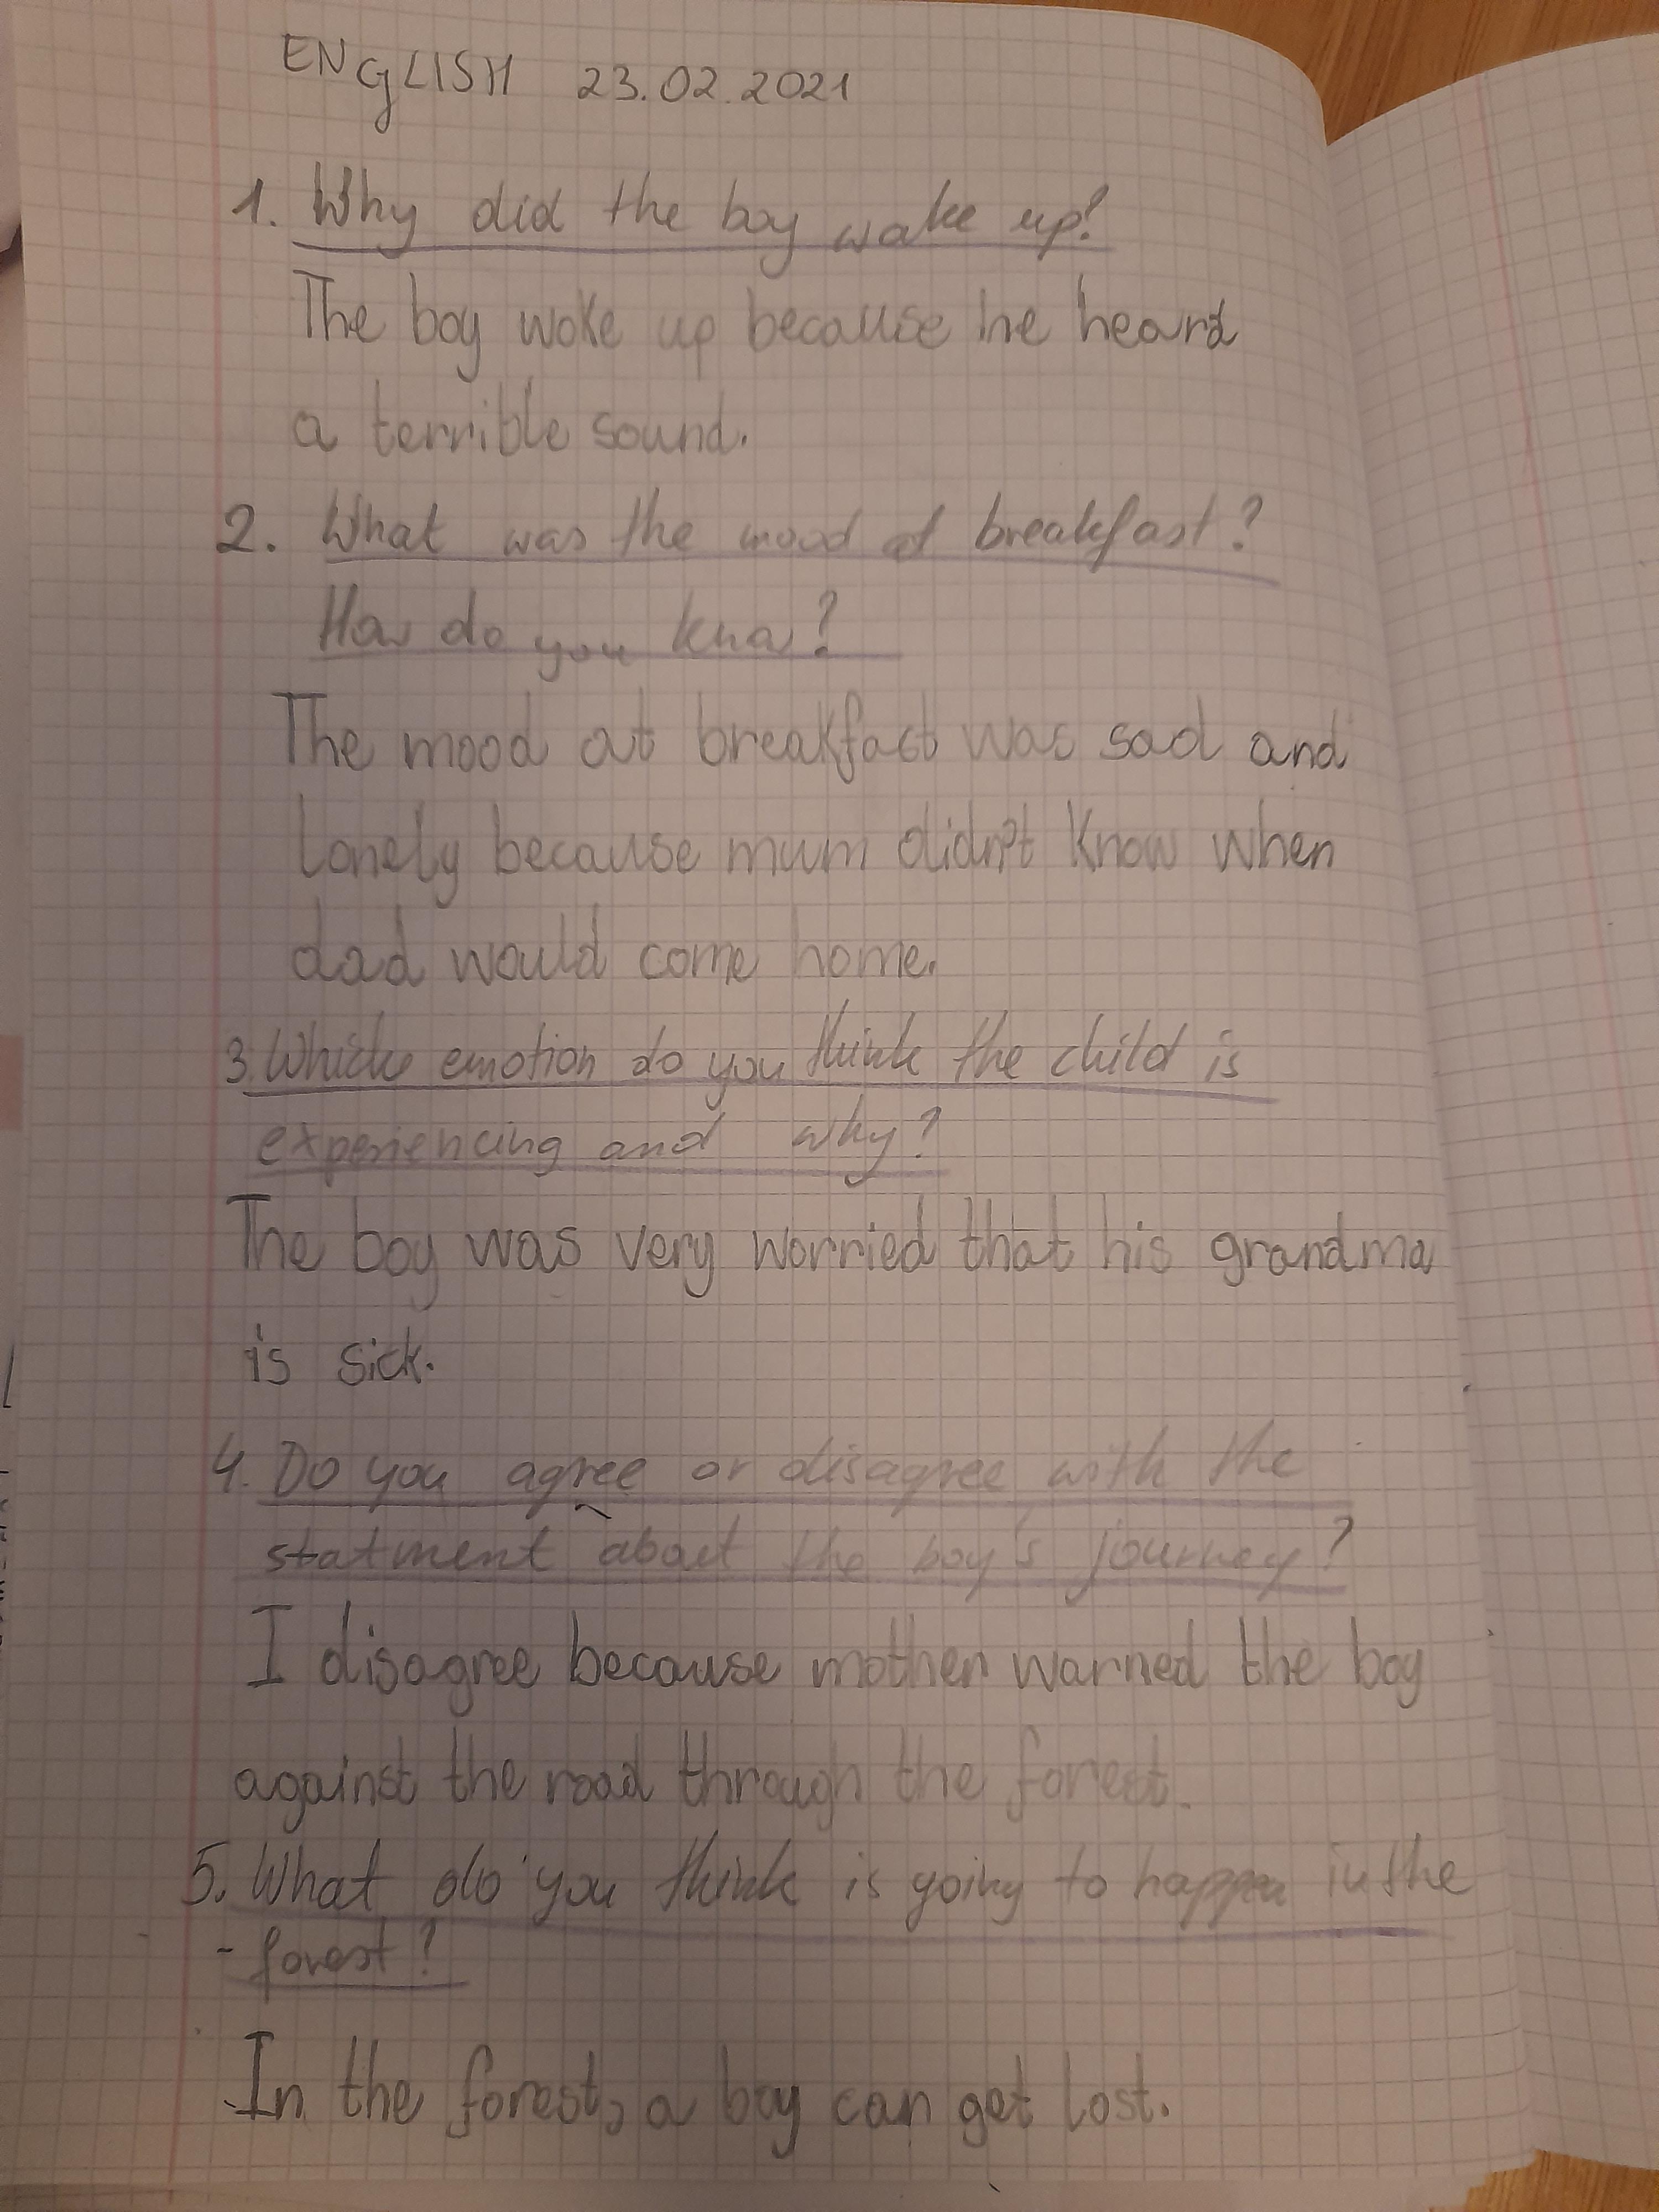 ENGLISH 23.02.2021
1. Why did the boy wake up?
The boy woke up because he heard
a terrible sound.
2. What was the mood at breakfast?
How do you know?
The mood at breakfast was sad and
lonely because mum didn't know when
dad would come home.
3. Which emotion do you think the child is
experiencing and why?
The boy was very worried that his grandma
is sick.
4. Do you agree or disagree with the
statment about the boy's journey?
I disagree because mother warned the boy
against the road through the forest.
5. What do you think is going to happen in the
- forest?
In the forest, a boy can get lost.